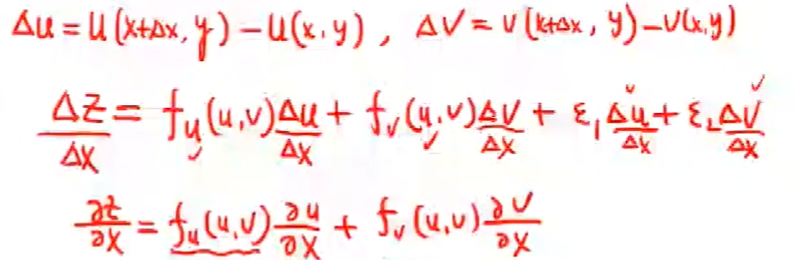 Δu = u(x+Δx, y) − u(x, y), Δv = v(x+Δx, y) − v(x, y)
Δz/Δx = f_u(u,v) Δu/Δx + f_v(u,v) Δv/Δx + ε₁ Δu/Δx + ε₂ Δv/Δx
∂z/∂x = f_u(u,v) ∂u/∂x + f_v(u,v) ∂v/∂x